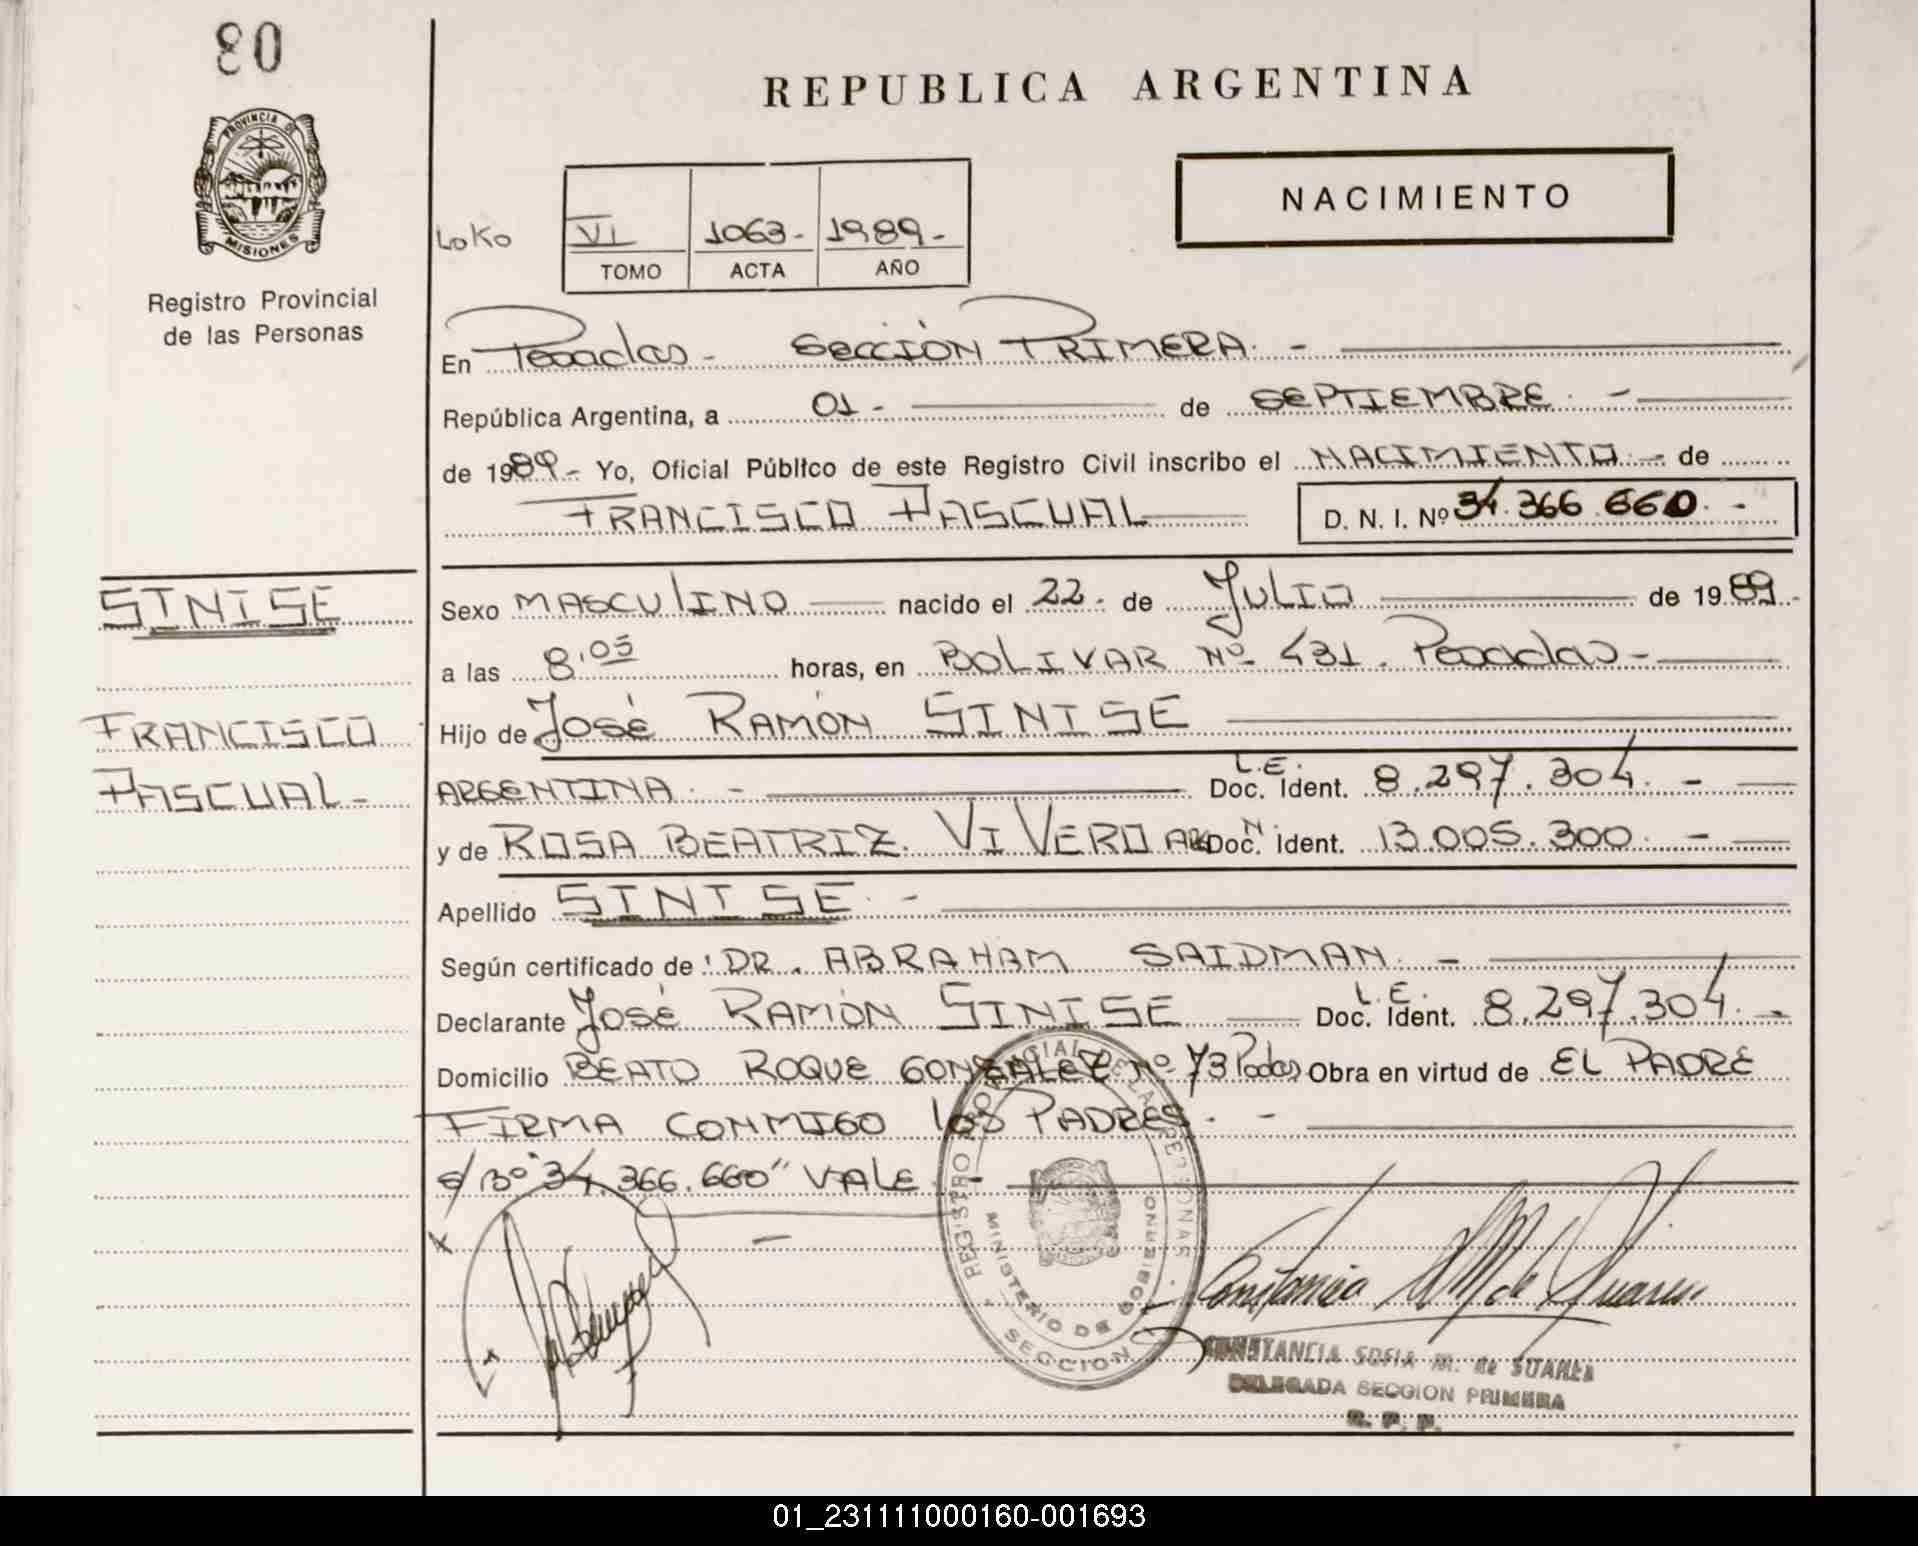 80
REPUBLICA ARGENTINA
PROVINCIA DE
MISIONES
Registro Provincial
de las Personas
NACIMIENTO
LoKo
VI 1063- 1989-
TOMO ACTA AÑO
En Posadas - SECCIÓN PRIMERA. -
República Argentina, a 01 - de SEPTIEMBRE. -
de 1989.- Yo, Oficial Público de este Registro Civil inscribo el NACIMIENTO - de
FRANCISCO PASCUAL D. N. I. Nº 34.366.660. -
SINISE
Sexo MASCULINO nacido el 22. de JULIO de 1989.-
a las 8.05 horas, en BOLIVAR Nº 431. Posadas -
FRANCISCO
Hijo de JOSÉ RAMÓN SINISE
PASCUAL-
ARGENTINA. - L.E. Doc. Ident. 8.297.304. -
y de ROSA BEATRIZ VIVERO N. Doc. Ident. 13.005.300. -
Apellido SINISE. -
Según certificado de: DR. ABRAHAM SAIDMAN. -
Declarante JOSÉ RAMÓN SINISE L.E. Doc. Ident. 8.297.304. -
Domicilio BEATO ROQUE GONZALEZ Nº 73 Pdas Obra en virtud de EL PADRE
FIRMA CONMIGO LOS PADRES. -
s/ Bº "34.366.660" VALE -
REGISTRO PROVINCIAL DE LAS PERSONAS
MINISTERIO DE GOBIERNO
SECCION
Constancia M de Suarez
CONSTANCIA SOFIA M. de SUAREZ
DELEGADA SECCION PRIMERA
R. P. P.
01_231111000160-001693